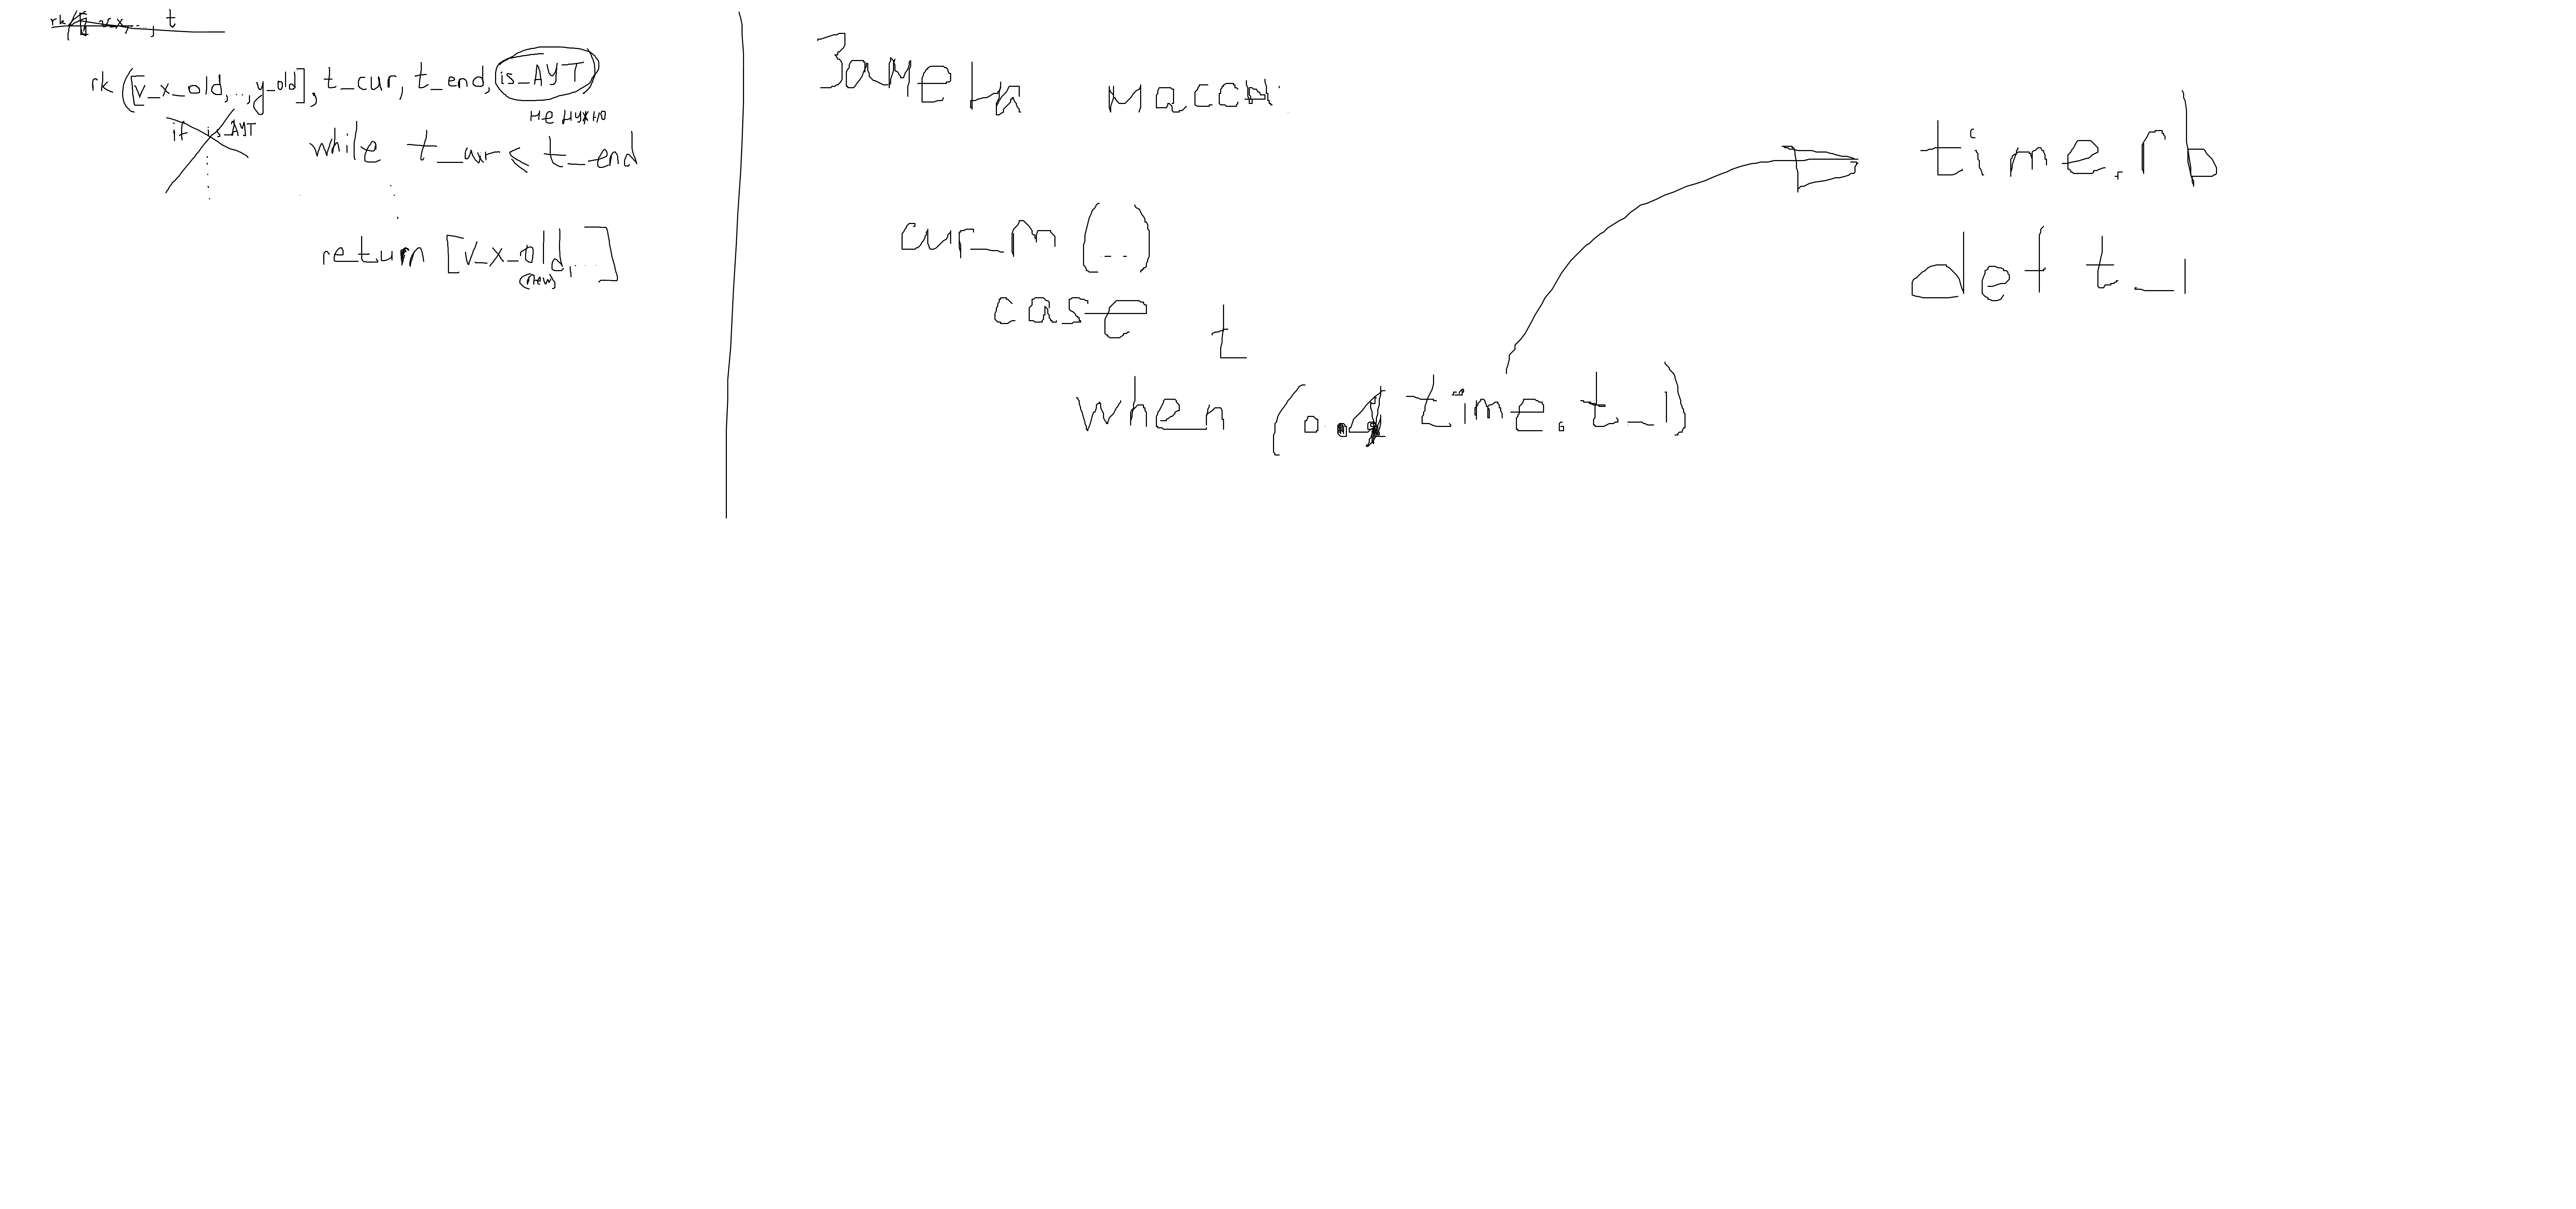 t
rk ([v_x_old,..,y_old], t_cur, t_end, is_АУТ
не нужно
if is_АУТ
while t_cur ≤ t_end
return [v_x_old, ...]
(new)
Замена массы
cur_m (...)
case t
when (0.. time.t_1)
time.rb
def t_1